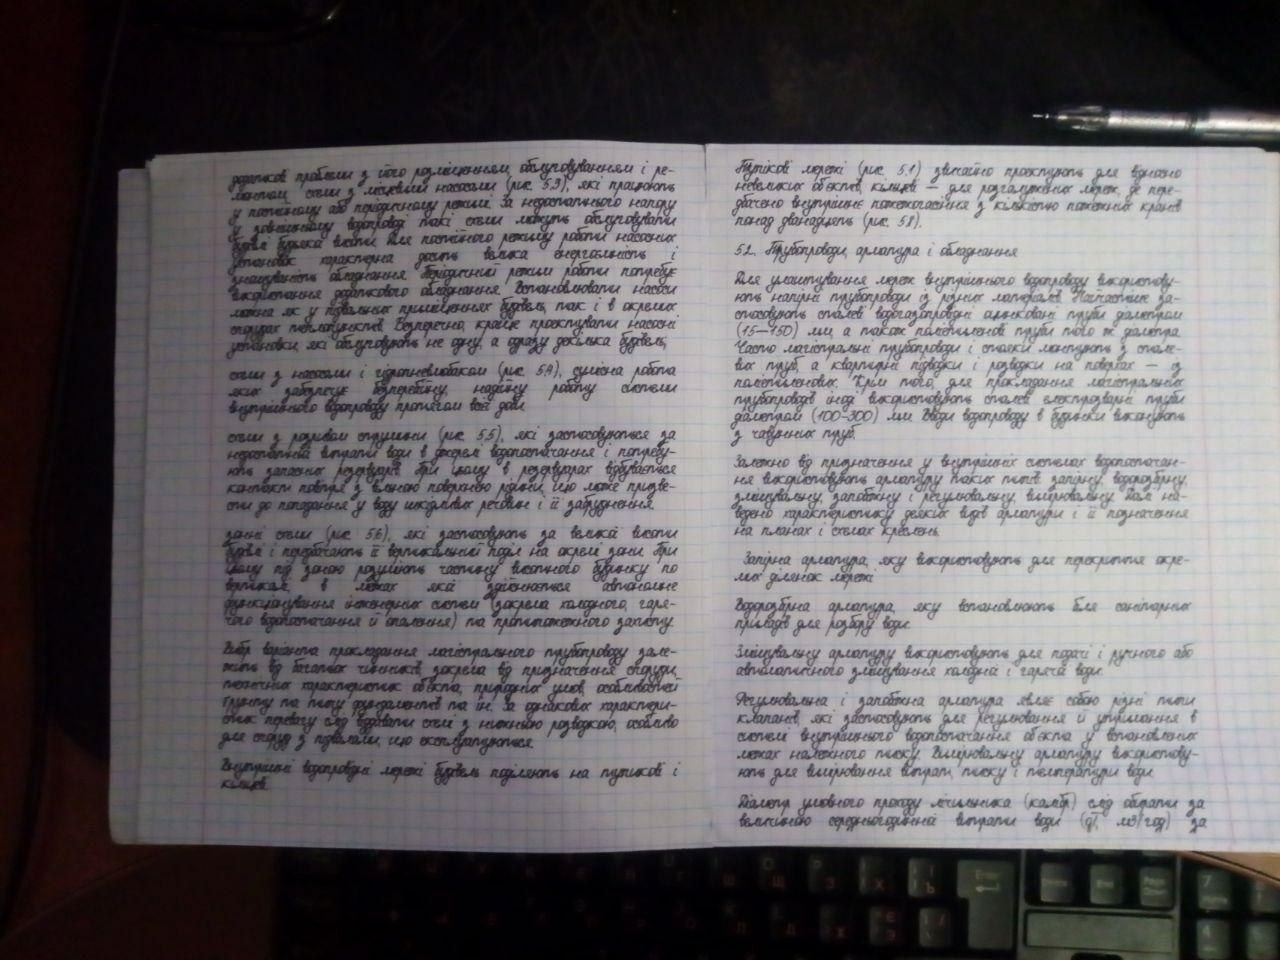 додаткові проблеми з його розміщенням, обслуговуванням і ре-
монтом; схеми з місцевими насосами (рис. 5.3), які працюють
у постійному або періодичному режимі. За недостатнього напору
у зовнішньому водопроводі такі схеми можуть обслуговувати
будівлі будь-якої висоти. Для постійного режиму роботи насосних
установок характерна досить велика енергоємність і
зношуваність обладнання. Періодичний режим роботи потребує
використання додаткового обладнання. Встановлювати насоси
можна як у підвальних приміщеннях будівель, так і в окремих
спорудах теплопунктів. Безперечно, краще проєктувати насосні
установки, які обслуговують не одну, а одразу декілька будівель;
схеми з насосами і гідропневмобаком (рис. 5.4), сумісна робота
яких забезпечує безперебійну, надійну роботу системи
внутрішнього водопроводу протягом всієї доби;
схеми з розривом струмини (рис. 5.5), які застосовуються за
недостатньої витрати води в джерелі водопостачання і потребу-
ють запасних резервуарів. При цьому в резервуарах відбувається
контакт повітря з вільною поверхнею рідини, що може призве-
сти до попадання у воду шкідливих речовин і її забруднення;
зонні схеми (рис. 5.6), які застосовують за великої висоти
будівлі і передбачають її вертикальний поділ на окремі зони. При
цьому під зоною розуміють частину висотного будинку по
вертикалі, в межах якої здійснюється автономне
функціонування інженерних систем (зокрема холодного, гаря-
чого водопостачання й опалення) та протипожежного захисту.
Вибір варіанта прокладання магістрального трубопроводу зале-
жить від багатьох чинників, зокрема від призначення споруди,
технічних характеристик об'єкта, природних умов, особливостей
ґрунту та типу фундаментів та ін. За однакових характери-
стик перевагу слід віддавати схемі з нижньою розводкою, особливо
для споруд з підвалами, що експлуатуються.
Внутрішні водопровідні мережі будівель поділяють на тупикові і
кільцеві.
Тупікові мережі (рис. 5.1) звичайно проєктують для відносно
невеликих об'єктів, кільцеві — для розгалужених мереж, де пере-
дбачено внутрішнє пожежогасіння з кількістю пожежних кранів
понад дванадцять (рис. 5.8).
5.2. Трубопроводи, арматура і обладнання
Для улаштування мереж внутрішнього водопроводу використову-
ють напірні трубопроводи із різних матеріалів. Найчастіше за-
стосовують сталеві водогазопровідні оцинковані труби діаметром
(15—150) мм, а також поліетиленові труби того ж діаметра.
Часто магістральні трубопроводи і стояки монтують з стале-
вих труб, а квартирні підводки і розводки на поверхах — із
поліетиленових. Крім того, для прокладання магістральних
трубопроводів іноді використовують сталеві електрозварні труби
діаметром (100-300) мм. Вводи водопроводу в будинки виконують
з чавунних труб.
Залежно від призначення у внутрішніх системах водопостачан-
ня використовують арматуру таких типів: запірну, водорозбірну,
змішувальну, запобіжну і регулювальну, вимірювальну. Далі на-
ведено характеристику деяких видів арматури і її позначення
на планах і схемах креслень.
Запірна арматура, яку використовують для перекриття окре-
мих ділянок мережі.
Водорозбірна арматура, яку встановлюють біля санітарних
приладів для розбору води.
Змішувальну арматуру використовують для подачі і ручного або
автоматичного змішування холодної і гарячої води.
Регулювальна і запобіжна арматура являє собою різні типи
клапанів, які застосовують для регулювання й утримання в
системі внутрішнього водопостачання об'єкта у встановлених
межах належного тиску. Вимірювальну арматуру використову-
ють для вимірювання витрат, тиску і температури води.
Діаметр умовного проходу лічильника (калібр) слід обирати за
величиною середньогодинної витрати води (q, м3/год) за